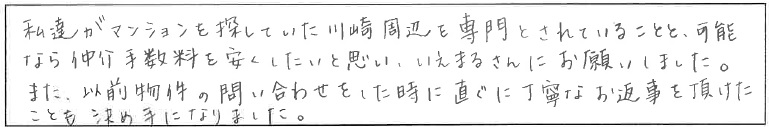 私達がマンションを探していた川崎周辺を専門とされていることと、可能
なら仲介手数料を安くしたいと思い、いえまるさんにお願いしました。
また、以前物件の問い合わせをした時に直ぐに丁寧なお返事を頂けた
ことも決め手になりました。